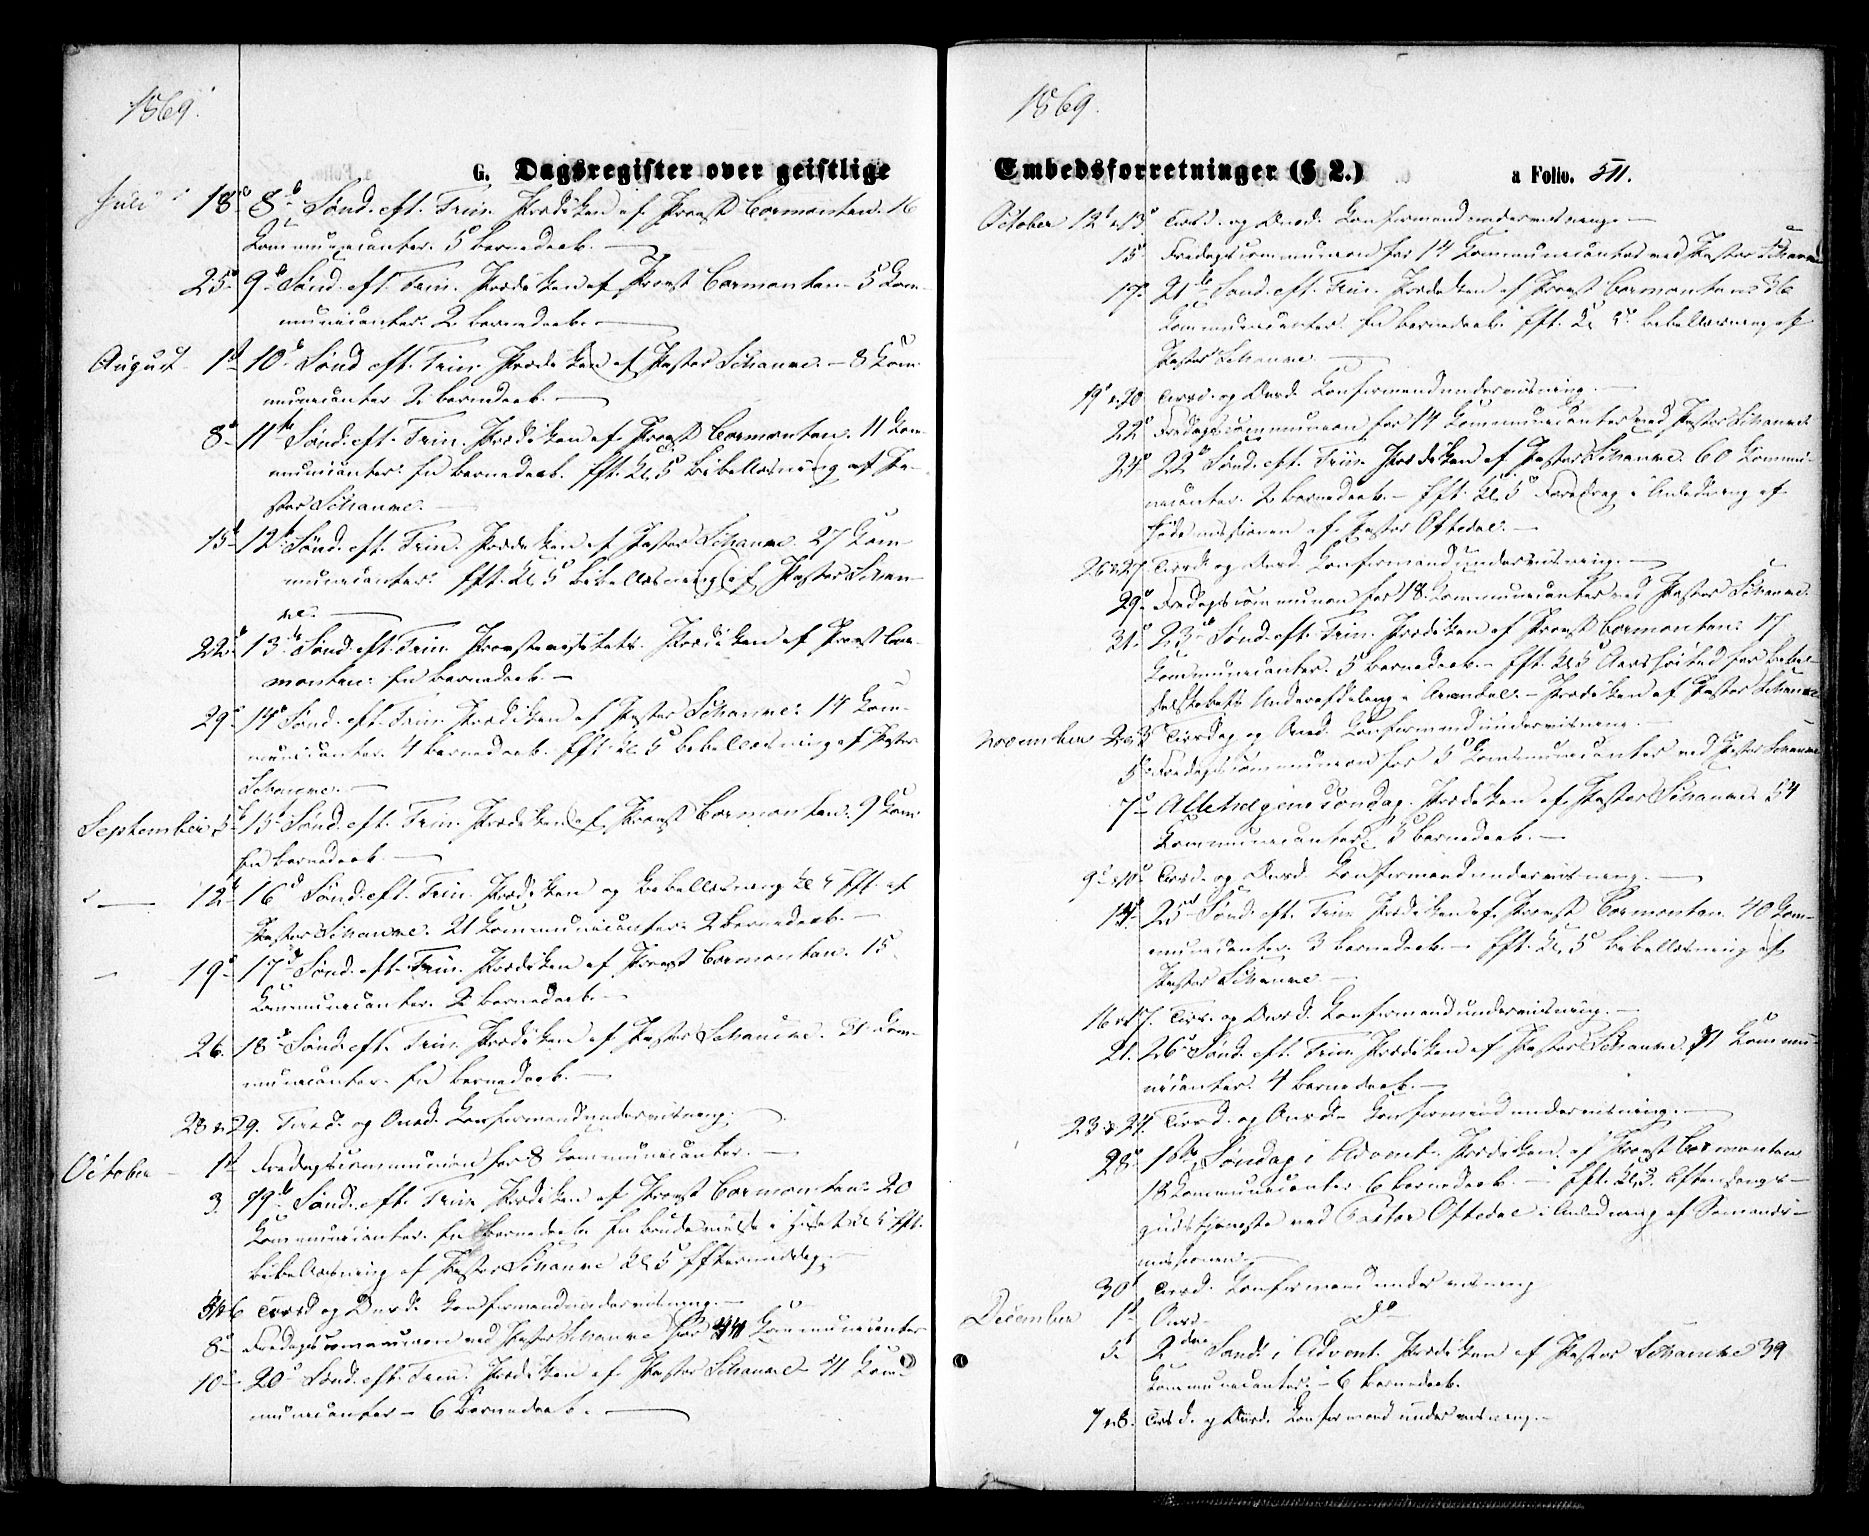 1869.
G. Dagsregister over geistlige
Juli 18de 8de Sønd. eft. Trin. Prædiken af Provst Cormontan. 16
Communicanter. 5 Barnedaab. —
25de 9de Sønd. eft. Trin. Prædiken af Provst Cormontan. 5 Com-
municanter. 2 Barnedaab. —
August 1st 10de Sønd. eft. Trin. Prædiken af Pastor Schanne. — 8 Com-
municanter 2 Barnedaab. —
8de 11te Sønd. eft. Trin. Prædiken af Provst Cormontan. 11 Com-
municanter. En Barnedaab. Eft. Kl. 5 Bibellæsning af Pa-
stor Schanne. —
15de 12te Sønd. eft. Trin. Prædiken af Pastor Schanne. 27 Com
municanter. Eft. Kl 5 Bibellæsning af Pastor Schan-
ne. —
22de 13de Sønd. eft. Trin. Provstevisitats. Prædiken af Provst Cor-
montan. En Barnedaab. —
29de 14de Sønd. eft. Trin. Prædiken af Pastor Schanne. 14 Com-
municanter. 4 Barnedaab. Eft. Kl 5 Bibellæsning af Pastor
Schanne. —
September 5te 15de Sønd. eft. Trin. Prædiken af Provst Cormontan. 9 Com
En Barnedaab. —
— 12te 16de Sønd. eft. Trin. Prædiken og Bibellæsning Kl 5 Eft. af
Pastor Schanne. 21 Communicanter. 2 Barnedaab. —
— 19de 17de Sønd. eft. Trin. Prædiken af Provst Cormontan. 15
Communicanter. 2 Barnedaab. —
26. 18de Sønd. eft. Trin. Prædiken af Pastor Schanne. Com-
municanter. En Barnedaab. —
28 & 29. Tirsd. og Onsd. Confirmandundervisning.
October — 1st Fredagscommunion for 8 Communicanter. —
3. 19de Sønd. eft. Trin. Prædiken af Provst Cormontan. 20
Communicanter. En Barnedaab. En i Huset Kl 5 Eft.
Bibellæsning af Pastor Schanne Kl. 5 Eftermiddag. —
5 & 6 Tirsd og Onsd. Confirmandundervisning. —
8de Fredagscommunion ved Pastor Schanne for 44 Communicanter
10de 20de Sønd. eft. Trin. Prædiken af Pastor Schanne — 41 Com-
municanter — 6 Barnedaab. —
1869.
Embedsforretninger (§ 2.) a Folio. 511.
October 12te & 13de Tirsd. og Onsd. Confirmandundervisning. —
15. Fredagscommunion for 14 Communicanter ved Pastor Schanne
17de 21de Sønd. eft. Trin. Prædiken af Provst Cormontan. 36
Communicanter. En Barnedaab. Eft. Kl 5. Bibellæsning af
Pastor Schanne. —
19de & 20 Tirsd. og Onsd. Confirmandundervisning. —
22de Fredagscommunion for 14 Communicanter ved Pastor Schanne
24de 22de Sønd. eft. Trin. Prædiken af Pastor Schanne. 60 Commu-
nicanter. 2 Barnedaab. — Eft. Kl. 5 Foredrag i Anledning af
missionen af Pastor Oftedal. —
26 & 27. Tirsd. og Onsd. Confirmandundervisning. —
29de Fredagscommunion for 18 Communicanter ved Pastor Schanne.
31de 23de Sønd. eft. Trin. Prædiken af Provst Cormontan. 17
Communicanter. 5 Barnedaab. — Eft. Kl 5 Aarshøitid for Bibel-
selskabets Underafdeling i Arendal. — Prædiken af Pastor Schanne
November 2 & 3 Tirsdag og Onsd. Confirmandundervisning. —
5te Fredagscommunion for 5 Communicanter ved Pastor Schanne
7de Allehelgens søndag. Prædiken af Pastor Schanne 54
Communicanter. 5 Barnedaab. —
9de & 10de Tirsd. og Onsd. Confirmandundervisning. —
14de 25de Sønd. eft. Trin. Prædiken af Provst Cormontan. 40 Com-
municanter. 3 Barnedaab. — Eft. Kl. 5 Bibellæsning af
Pastor Schanne —
16 & 17. Tirs. og Onsd. Confirmandundervisning. —
21. 26de Sønd. eft. Trin. Prædiken af Pastor Schanne. 31 Commu-
nicanter. 4 Barnedaab. —
23 & 24. Tirsd. og Onsd — Confirmandundervisning. —
28de 1ste Søndag i Advent. Prædiken af Provst Cormontan
18 Communicanter. 6 Barnedaab. — Eft. Kl. 5. Aftensangs-
gudstjeneste ved Pastor Oftedal i Anledning af Sømands-
missionen. —
30te Tirsd. Confirmandundervisning
December 1st Onsd — Do —
5te 2den Sønd. i Advent. Prædiken af Pastor Schanne 39
Communicanter. — 6 Barnedaab.
7 & 8. Tirsd. og Onsd. Confirmandundervisning. —